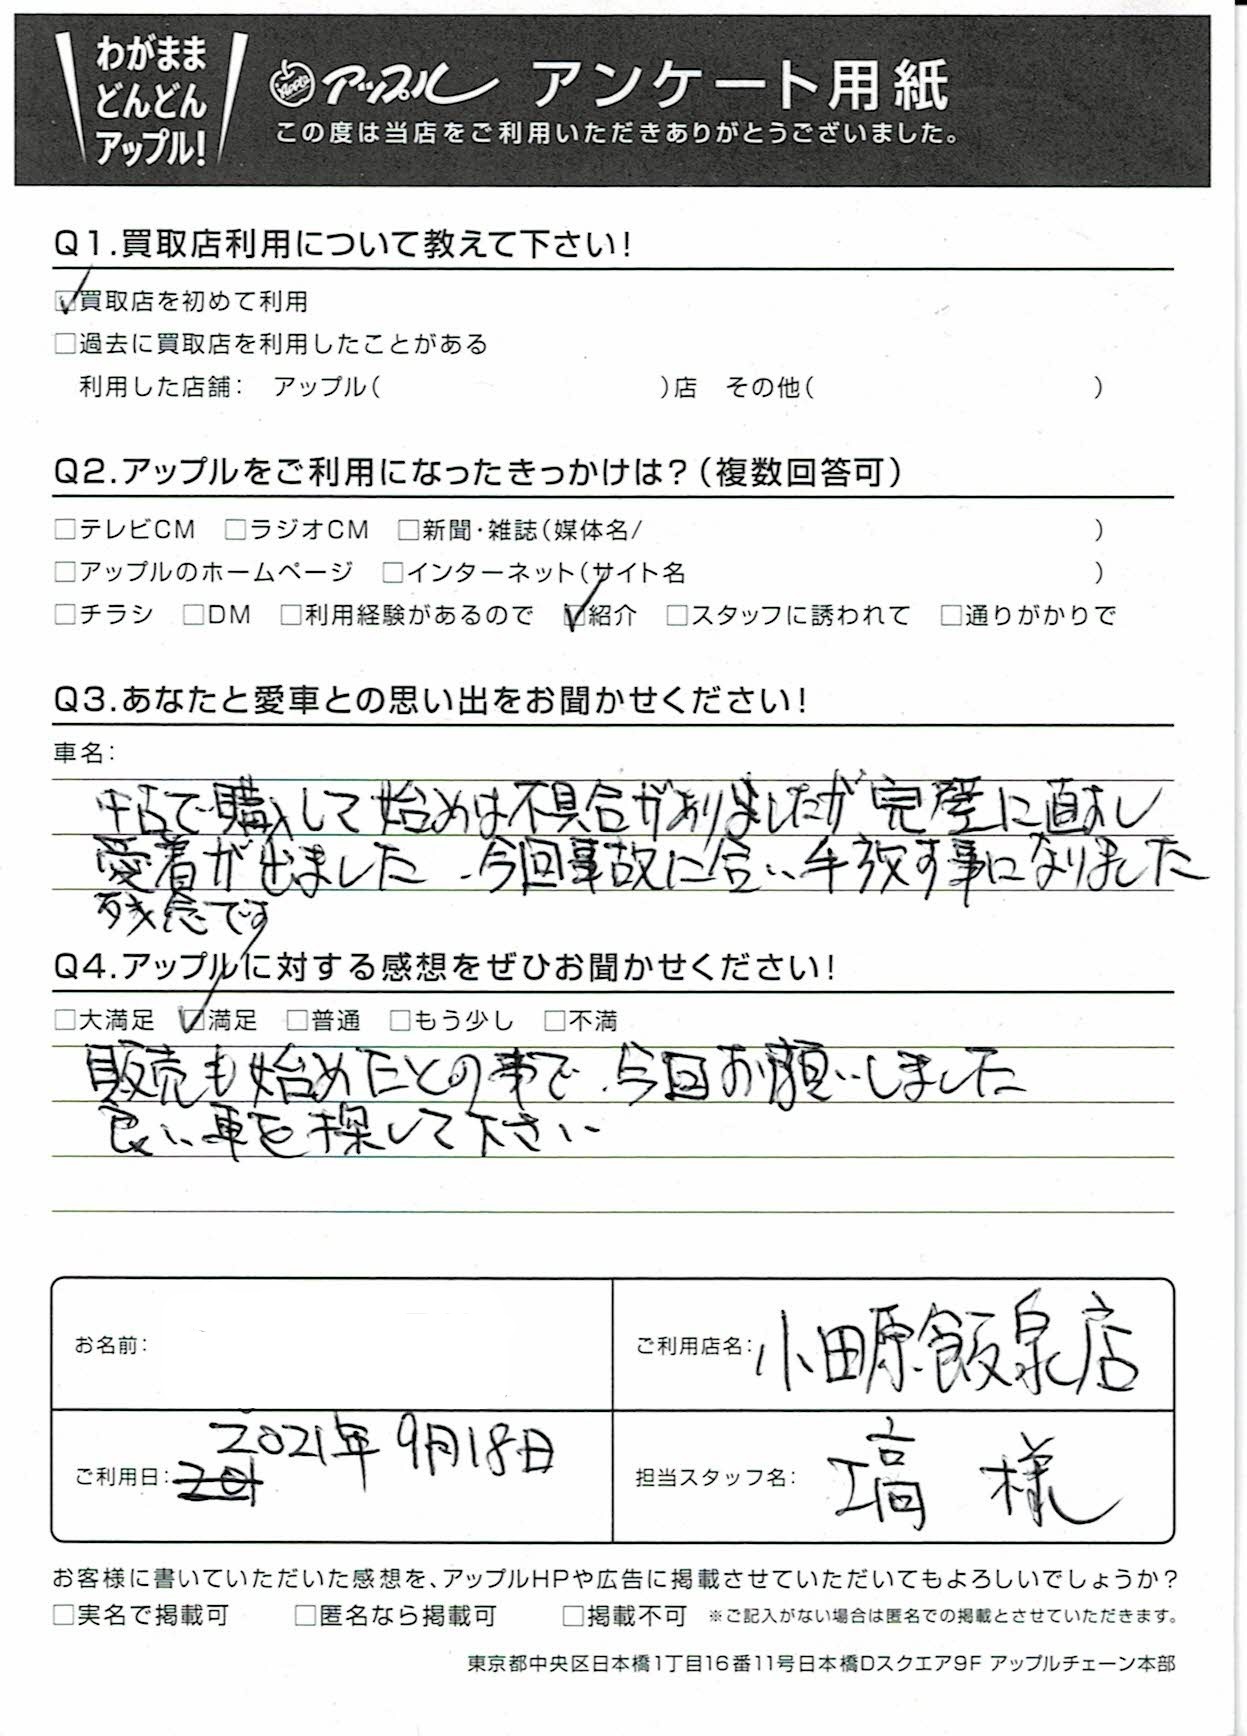 わがまま
どんどん
アップル!
Apple アップル アンケート用紙
この度は当店をご利用いただきありがとうございました。
Q1.買取店利用について教えて下さい!
☑買取店を初めて利用
□過去に買取店を利用したことがある
利用した店舗: アップル( )店 その他( )
Q2.アップルをご利用になったきっかけは?(複数回答可)
□テレビCM □ラジオCM □新聞・雑誌(媒体名/ )
□アップルのホームページ □インターネット(サイト名 )
□チラシ □DM □利用経験があるので ☑紹介 □スタッフに誘われて □通りがかりで
Q3.あなたと愛車との思い出をお聞かせください!
車名:
中古で購入して始めは不具合がありましたが完璧に直おし
愛着が出ました.今回事故に合い手放す事になりました
残念です
Q4.アップルに対する感想をぜひお聞かせください!
□大満足 ☑満足 □普通 □もう少し □不満
販売も始めたとの事で.今回お願いしました
良い車を探して下さい
お名前:
ご利用店名: 小田原飯泉店
ご利用日: 2021年9月18日
担当スタッフ名: 様
お客様に書いていただいた感想を、アップルHPや広告に掲載させていただいてもよろしいでしょうか?
□実名で掲載可 □匿名なら掲載可 □掲載不可 ※ご記入がない場合は匿名での掲載とさせていただきます。
東京都中央区日本橋1丁目16番11号日本橋Dスクエア9F アップルチェーン本部